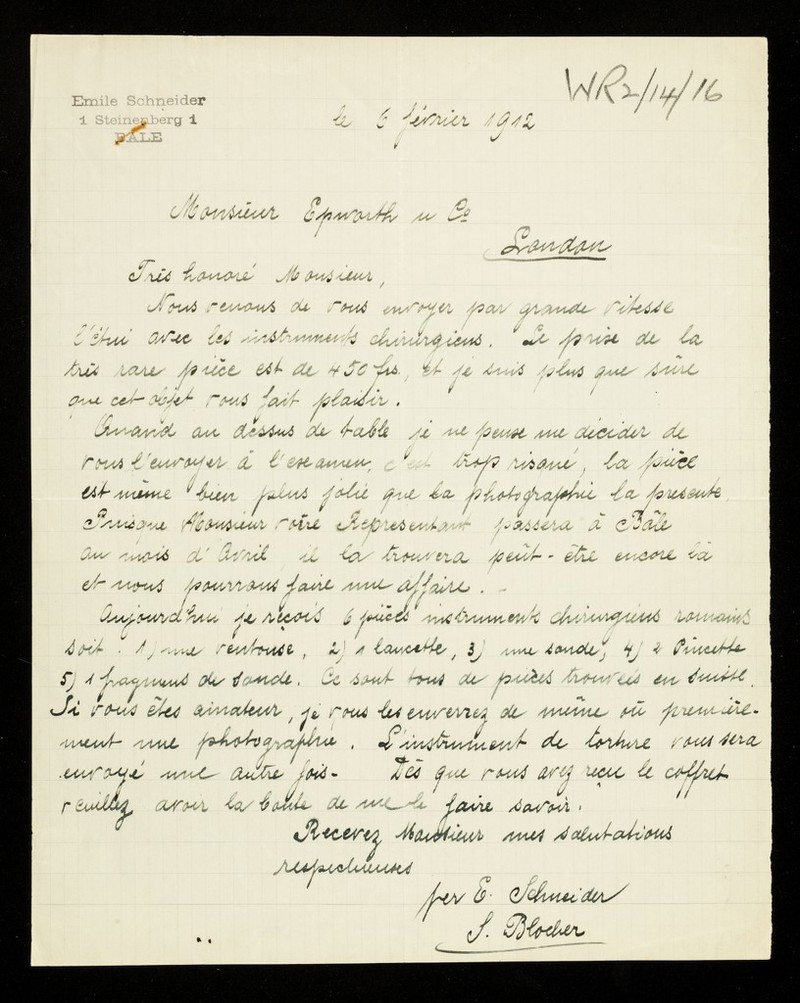 Emile Schneider
1 Steinenberg 1
BÂLE
WR2/14/16
le 6 février 1912
Monsieur Epworth u Co
London
Très honoré Monsieur,
Nous venons de vous envoyer par grande vitesse
l'étui avec les instruments chirurgiens. Le prise de la
très rare pièce est de 450 frs., et je suis plus que sûre
que cet objet vous fait plaisir.
Quand au dessus de table je ne pense me décider de
vous l'envoyer à l'examen, c'est trop risqué, la pièce
est même bien plus jolie que la photographie la presente.
Puisque Monsieur votre Representant passera à Bâle
au mois d'Avril il la trouvera peût-être encore là
et nous pourrons faire une affaire. -
Aujourd'hui je reçois 6 pièces instruments chirurgiens romains
soit. 1) une ventouse, 2) 1 lancette, 3) une sonde, 4) 2 Pincette
5) 1 fragmens de sonde. Ce sont tous de pièces trouvées en Suisse.
Si vous êtes amateur, je vous les enverrez de même où première-
ment une photographie. L'instrument de torture vous sera
envoyé une autre fois- Dès que vous avez reçu le coffret
veuillez avoir la bonte de me le faire savoir.
Recevez Monsieur mes salutations
respectueuses
per E. Schneider
S. Blocher